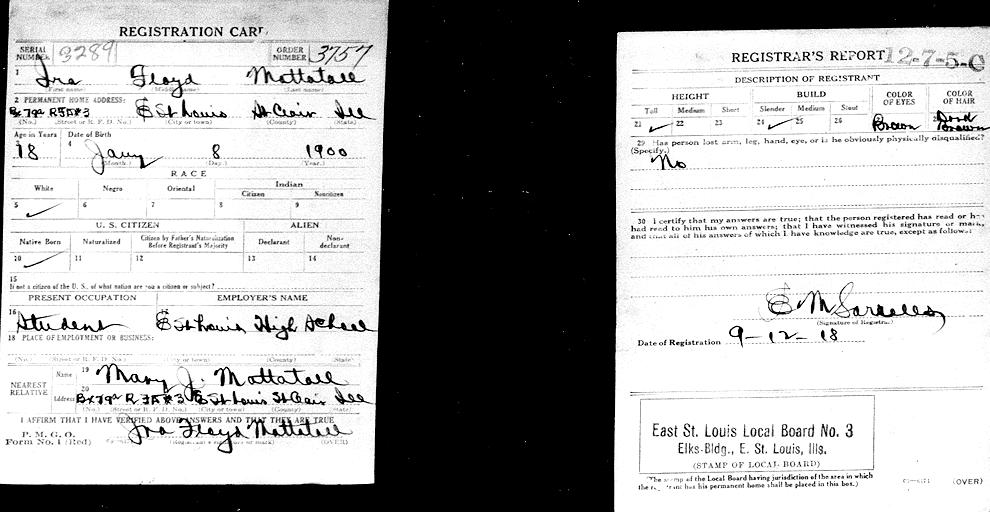 REGISTRATION CARD
SERIAL NUMBER 3289 ORDER NUMBER 3757
1 Ira Floyd Mottatall
(First name) (Middle name) (Last name)
2 PERMANENT HOME ADDRESS:
Bx 79a R.F.D#3 E St Louis St Clair Ill
(No.) (Street or R. F. D. No.) (City or town) (County) (State)
Age in Years Date of Birth
3 18 4 Jany 8 1900
(Month.) (Day.) (Year.)
RACE
White Negro Oriental Indian
Citizen Noncitizen
5 ✓ 6 7 8 9
U. S. CITIZEN ALIEN
Native Born Naturalized Citizen by Father's Naturalization Before Registrant's Majority Declarant Non-declarant
10 ✓ 11 12 13 14
15
If not a citizen of the U. S., of what nation are you a citizen or subject?
PRESENT OCCUPATION EMPLOYER'S NAME
16 Student E St Louis High School
18 PLACE OF EMPLOYMENT OR BUSINESS:
(No.) (Street or R. F. D. No.) (City or town) (County) (State)
NEAREST RELATIVE Name 19 Mary J. Mottatall
Address 20 Bx 79a R #3 E St Louis St Clair Ill
(No.) (Street or R. F. D. No.) (City or town) (County) (State)
I AFFIRM THAT I HAVE VERIFIED ABOVE ANSWERS AND THAT THEY ARE TRUE
P. M. G. O.
Form No. 1 (Red) Ira Floyd Mottatall
(Registrant's signature or mark) (OVER)
REGISTRAR'S REPORT 12-7-5-C
DESCRIPTION OF REGISTRANT
HEIGHT BUILD COLOR OF EYES COLOR OF HAIR
Tall Medium Short Slender Medium Stout
21 ✓ 22 23 24 ✓ 25 26 Brown Brown
29 Has person lost arm, leg, hand, eye, or is he obviously physically disqualified?
(Specify.)
No
30 I certify that my answers are true; that the person registered has read or has
had read to him his own answers; that I have witnessed his signature or mark,
and that all of his answers of which I have knowledge are true, except as follows:
E M
(Signature of Registrar)
Date of Registration 9-12-18
East St. Louis Local Board No. 3
Elks-Bldg., E. St. Louis, Ills.
(STAMP OF LOCAL BOARD)
(The stamp of the Local Board having jurisdiction of the area in which
the registrant has his permanent home shall be placed in this box.)
(OVER)